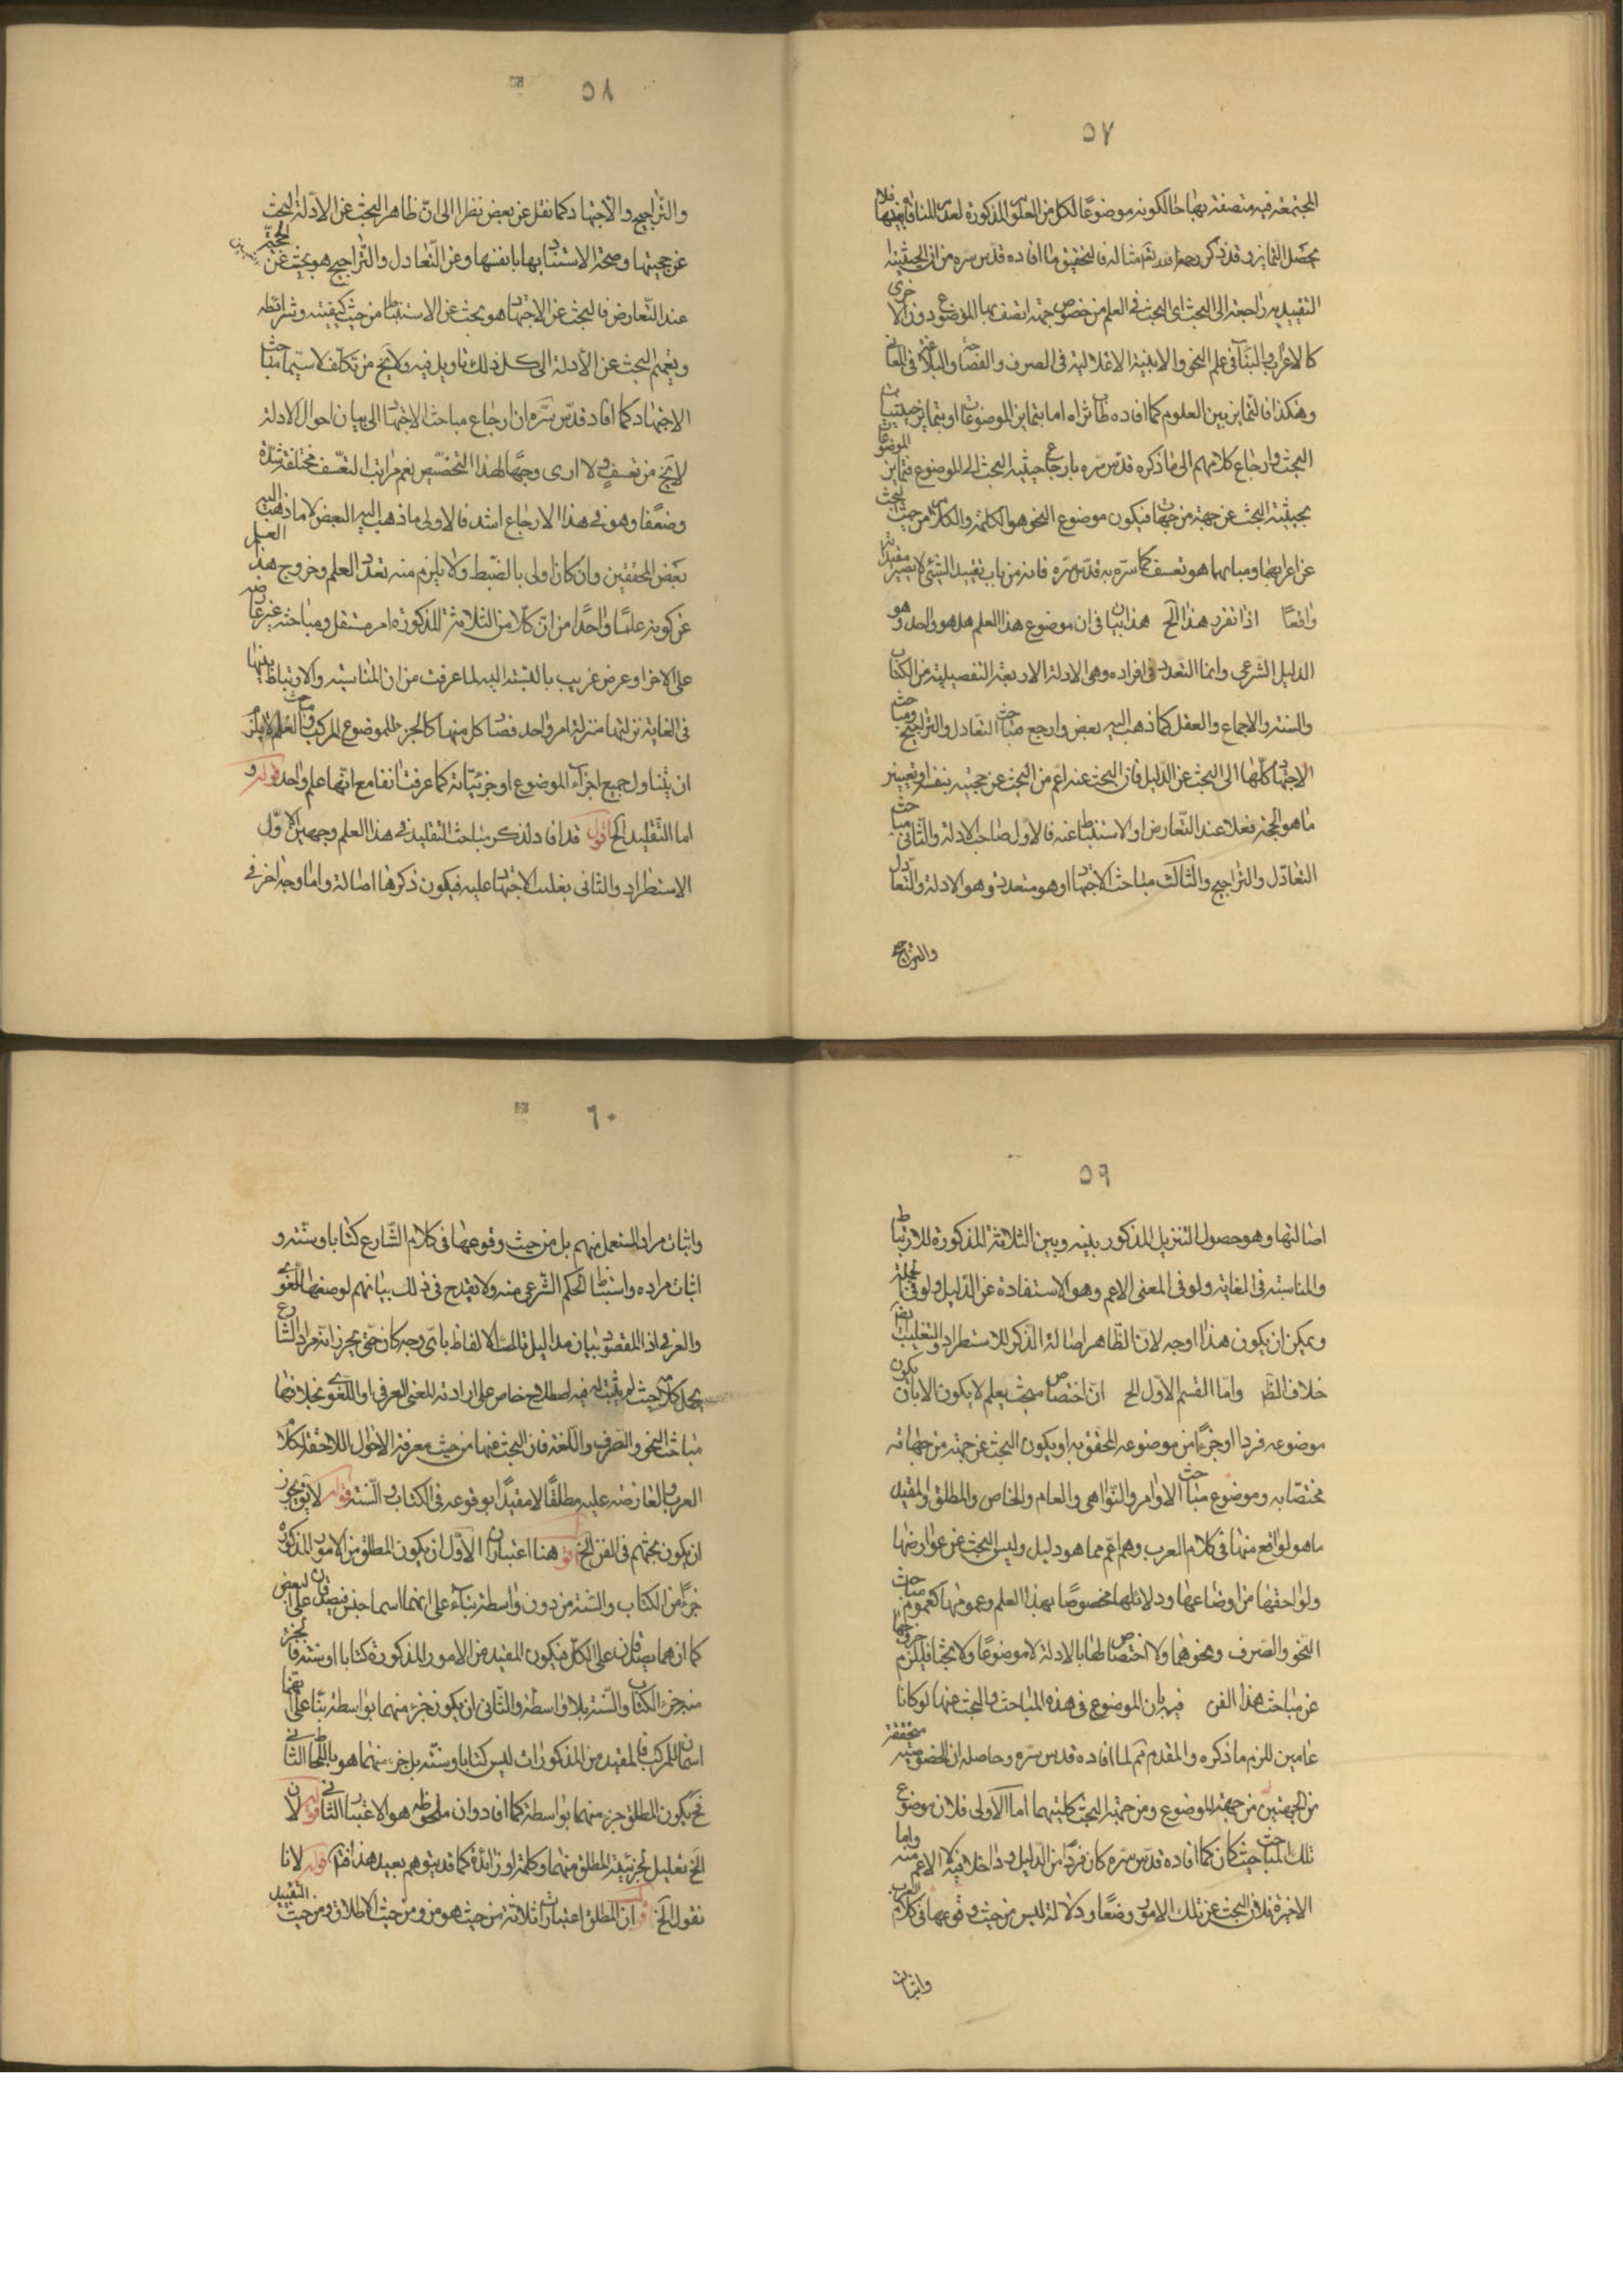 ٥٧
المجتمعة فيه متصفة بها حالكونه موضوعًا لكل من العلوم المذكورة لعدم المنافاة بينها فلا
يحصل التمايز وقد ذكر رحمه الله تعم مثاله فالتحقيق ما افاده قدس سره من ان الحيثية
التقييدية راجعة الى البحث اى البحث فى العلم من خصوص جهة اتصف بها الموضوع دون الاخرى
كالاعراب والبناء فى علم النحو والابنية الاعلالية فى الصرف والفصاحة والبلاغة فى المعانى
وهكذا فالتمايز بين العلوم كما افاده طاب ثراه اما بتمايز الموضوعات او بتمايز حيثيات
البحث وارجاع كلامهم الى ما ذكره قدس سره بارجاع حيثية البحث الى الموضوع فتمايز الموضوعان
بحيثية البحث عن جهة من جهاتها فيكون موضوع النحو هو الكلمة والكلام من حيث البحث
عن اعرابهما وبنائهما هو تعسف كما سره به قدس سره فانه من باب تقييد الشئ لا يصير مقيدا به
واقعًا اذا تفرد هذا الخ هذا بيان فى ان موضوع هذا العلم هل هو واحد وهو
الدليل الشرعى وانما التعدد فى افراده وهى الادلة الاربعة التفصيلية من الكتاب
والسنة والاجماع والعقل كما ذهب اليه بعض وارجع مباحث التعادل والتراجيح ومباحث
الاجتهاد كلها الى البحث عن الدليل فان البحث عنه اعم من البحث عن حجيته بنفسه او تعيين
ما هو الحجة فعلا عند التعارض او الاستنباط عنه فالاول مباحث الادلة والثانى مباحث
التعادل والتراجيح والثالث مباحث الاجتهاد او هو متعدد وهو الادلة والتعادل
والتراجيح
٥٨
والتراجيح والاجتهاد كما نقل عن بعض نظرا الى ان ظاهر البحث عن الادلة البحث
عن حجيتها وصحة الاستناد بها بانفسها وعن التعادل والتراجيح هو بحث عن الحجية
عند التعارض فالبحث عن الاجتهاد هو بحث عن الاستنباط من حيث كيفيته وشرائطه
وتعميم البحث عن الأدلة الى كل ذلك تاويل فيه ولا يخ من تكلف لا سيما مباحث
الاجتهاد كما افاد قدس سره ان ارجاع مباحث الاجتهاد الى بيان احوال الادلة
لا يخ من تعسف ولا ارى وجهًا لهذا التخصيص نعم مراتب التعسف مختلفة شدة
وضعفا وهو فى هذا الارجاع اشد فالاولى ما ذهب اليه البعض لا ما ذهب اليه
بعض المحققين وان كان اولى بالضبط ولا يلزم منه تعدد العلم وخروج هذا العلم
عن كونه علمًا واحدًا من ان كلا من الثلاثة المذكورة امر مستقل ومباحثه غير عارضه
على الاخر او عرض غريب بالنسبة اليه لما عرفت من ان المناسبة والارتباط بينها
فى الغاية نزلتها منزلة امر واحد فصار كل منها كالجزء للموضوع المركب ومباحث العلم لا يلزم
ان يتناول جميع اجزاء الموضوع او جزئياته كما عرفت انفا مع انها علم واحد قوله و
اما التقليد الخ اقول قد افاد لذكر مباحث التقليد فى هذا العلم وجهين الاول
الاستطراد والثانى بغلبة الاجتهاد عليه فيكون ذكرها اصالة واما وجه اخر فى
٥٩
اصالتها وهو حصول التنزيل المذكور بينه وبين الثلاثة المذكورة للارتباط
والمناسبة فى الغاية ولو فى المعنى الاعم وهو الاستفادة عن الدليل ولو فى الجملة
ويمكن ان يكون هذا اوجه لان الظاهر اصالة الذكر للاستطراد والتغليب
خلاف الظ واما القسم الاول الخ ان اختصاص مبحث بعلم لا يكون الا بان يكون
موضوعه فردا او جزءًا من موضوعه المحقق به او يكون البحث عن جهة من جهاته
مختصا به وموضوع مباحث الاوامر والنواهى والعام والخاص والمطلق والمقيد
ما هو لواقع منها فى كلام العرب وهم اعم مما هو دليل وليس البحث عن عوارضها
ولواحقها من اوضاعها ودلائلها مخصوصًا بهذا العلم وعمومها كعموم مباحث
النحو والصرف ونحوهما ولا اختصاص لها بالادلة لا موضوعًا ولا بحثا فيلزم خروجها
عن مباحث هذا الفن فيه بان الموضوع فى هذه المباحث والبحث عنها لو كانا
عامين للزم ما ذكره والمقدم ثم لما افاده قدس سره وحاصله ان الخصوصية متحققة
من الجهتين من جهة الموضوع ومن جهة البحث كليتهما اما الاولى فلان موضوع
تلك المباحث كان كما افاده قدس سره كان فردًا من الدليل وداخلا فيه لا الاعم منه واما
الاخيرة فلان البحث عن تلك الامور وضعًا ودلالة ليس من حيث وقوعها فى كلام العرب
واثبات
٦٠
واثبات مراد المستعمل منهم بل من حيث وقوعها فى كلام الشارع كتابا وسنة و
اثبات مراده واستنباط الحكم الشرعى منه ولا يقدح فى ذلك بيانهم لوضعها اللغوى
والعرفى اذ المقصود بيان مداليل تلك الالفاظ باى وجه كان حتى يحرز انه مراد الشارع
يحمل كلامه حيث لم يثبت له فيه اصطلاح خاص على ارادته المعنى العرفى او اللغوى بخلافها
مباحث النحو والصرف واللغة فان البحث عنها من حيث معرفة الاحوال اللاحقة لكلام
العرب والعارضة عليه مطلقًا لا مقيدًا بوقوعه فى الكتاب والسنة قوله لا يق يجوز
ان يكون بحثهم فى الفن الخ اقو هنا اعتباران الاول ان يكون المطلق من الامور المذكورة
جزءًا من الكتاب والسنة من دون واسطة بناء على انهما اسما جنس فيصدقان على البعض
كما انهما يصدقان على الكل فيكون المقيد من الامور المذكورة كتابا او سنة فالجزء
منه جزء الكتاب والسنة بلا واسطة والثانى ان يكون جزء منهما بواسطة بناء على انهما
اسمان للمركب فالمقيد من المذكورات ليس كتابا وسنة بل جزء منهما هو باللحاظ الثانى
فح يكون المطلق جزء منهما بواسطة كما افاد وان ملحوظه هو الاعتبار الثانى قوله لان
الخ تعليل لجزئية المطلق منهما وكلمة او زائدة كما قد يتوهم بعيد هذا فتم قوله لانا
نقول الخ اقو ان للمطلق اعتبارات ثلاثة من حيث هو من ومن حيث الاطلاق ومن حيث التقييد